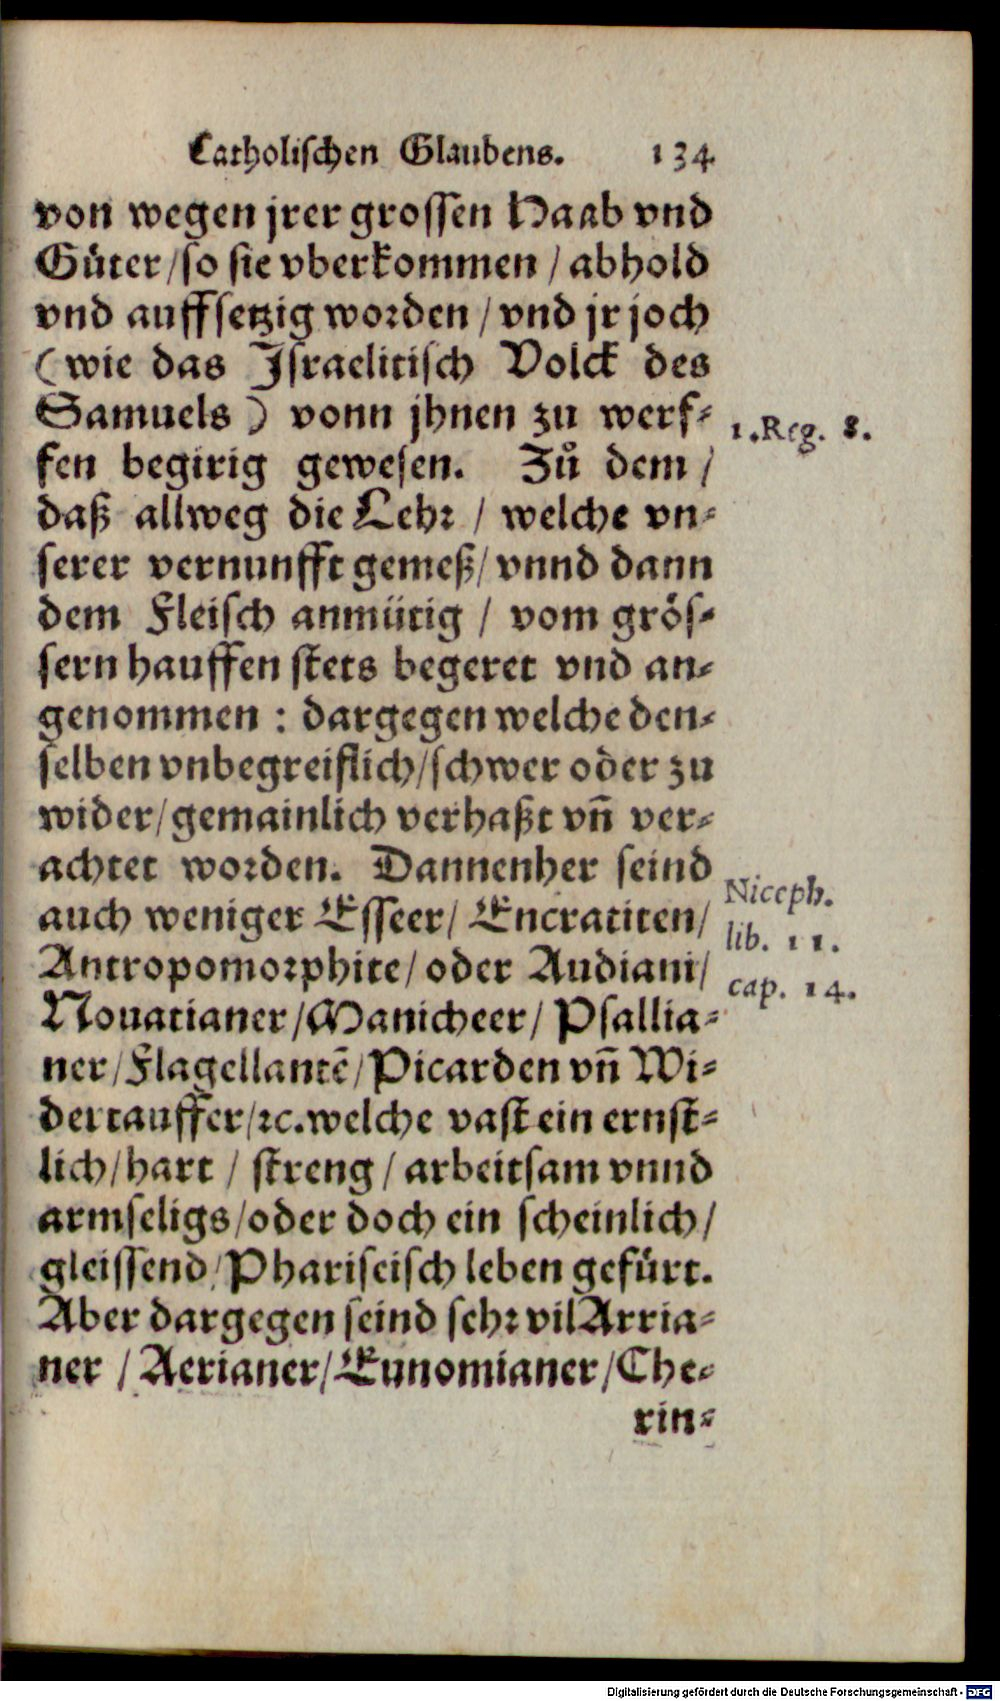 Catholischen Glaubens. 134
von wegen jrer grossen Haab vnd
Gůter / so sie vberkommen / abhold
vnd auffsetzig worden / vnd jr joch
(wie das Israelitisch Volck des
Samuels) vonn jhnen zu werf-
fen begirig gewesen. Zů dem /
1.Reg. 8.
daß allweg die Lehr / welche vn-
serer vernunfft gemeß / vnnd dann
dem Fleisch anmütig / vom grös-
sern hauffen stets begeret vnd an-
genommen : dargegen welche den-
selben vnbegreiflich / schwer oder zu
wider / gemainlich verhaßt vn̄ ver-
achtet worden. Dannenher seind
auch weniger Esseer / Encratiten /
Niceph.
lib. 11.
cap. 14.
Antropomorphite / oder Audiani /
Nouatianer / Manicheer / Psallia-
ner / Flagellantē / Picarden vn̄ Wi-
dertauffer / ꝛc. welche vast ein ernst-
lich / hart / streng / arbeitsam vnnd
armseligs / oder doch ein scheinlich /
gleissend / Phariseisch leben gefürt.
Aber dargegen seind sehr vil Arria-
ner / Aerianer / Eunomianer / Che-
rin-
Digitalisierung gefördert durch die Deutsche Forschungsgemeinschaft - DFG